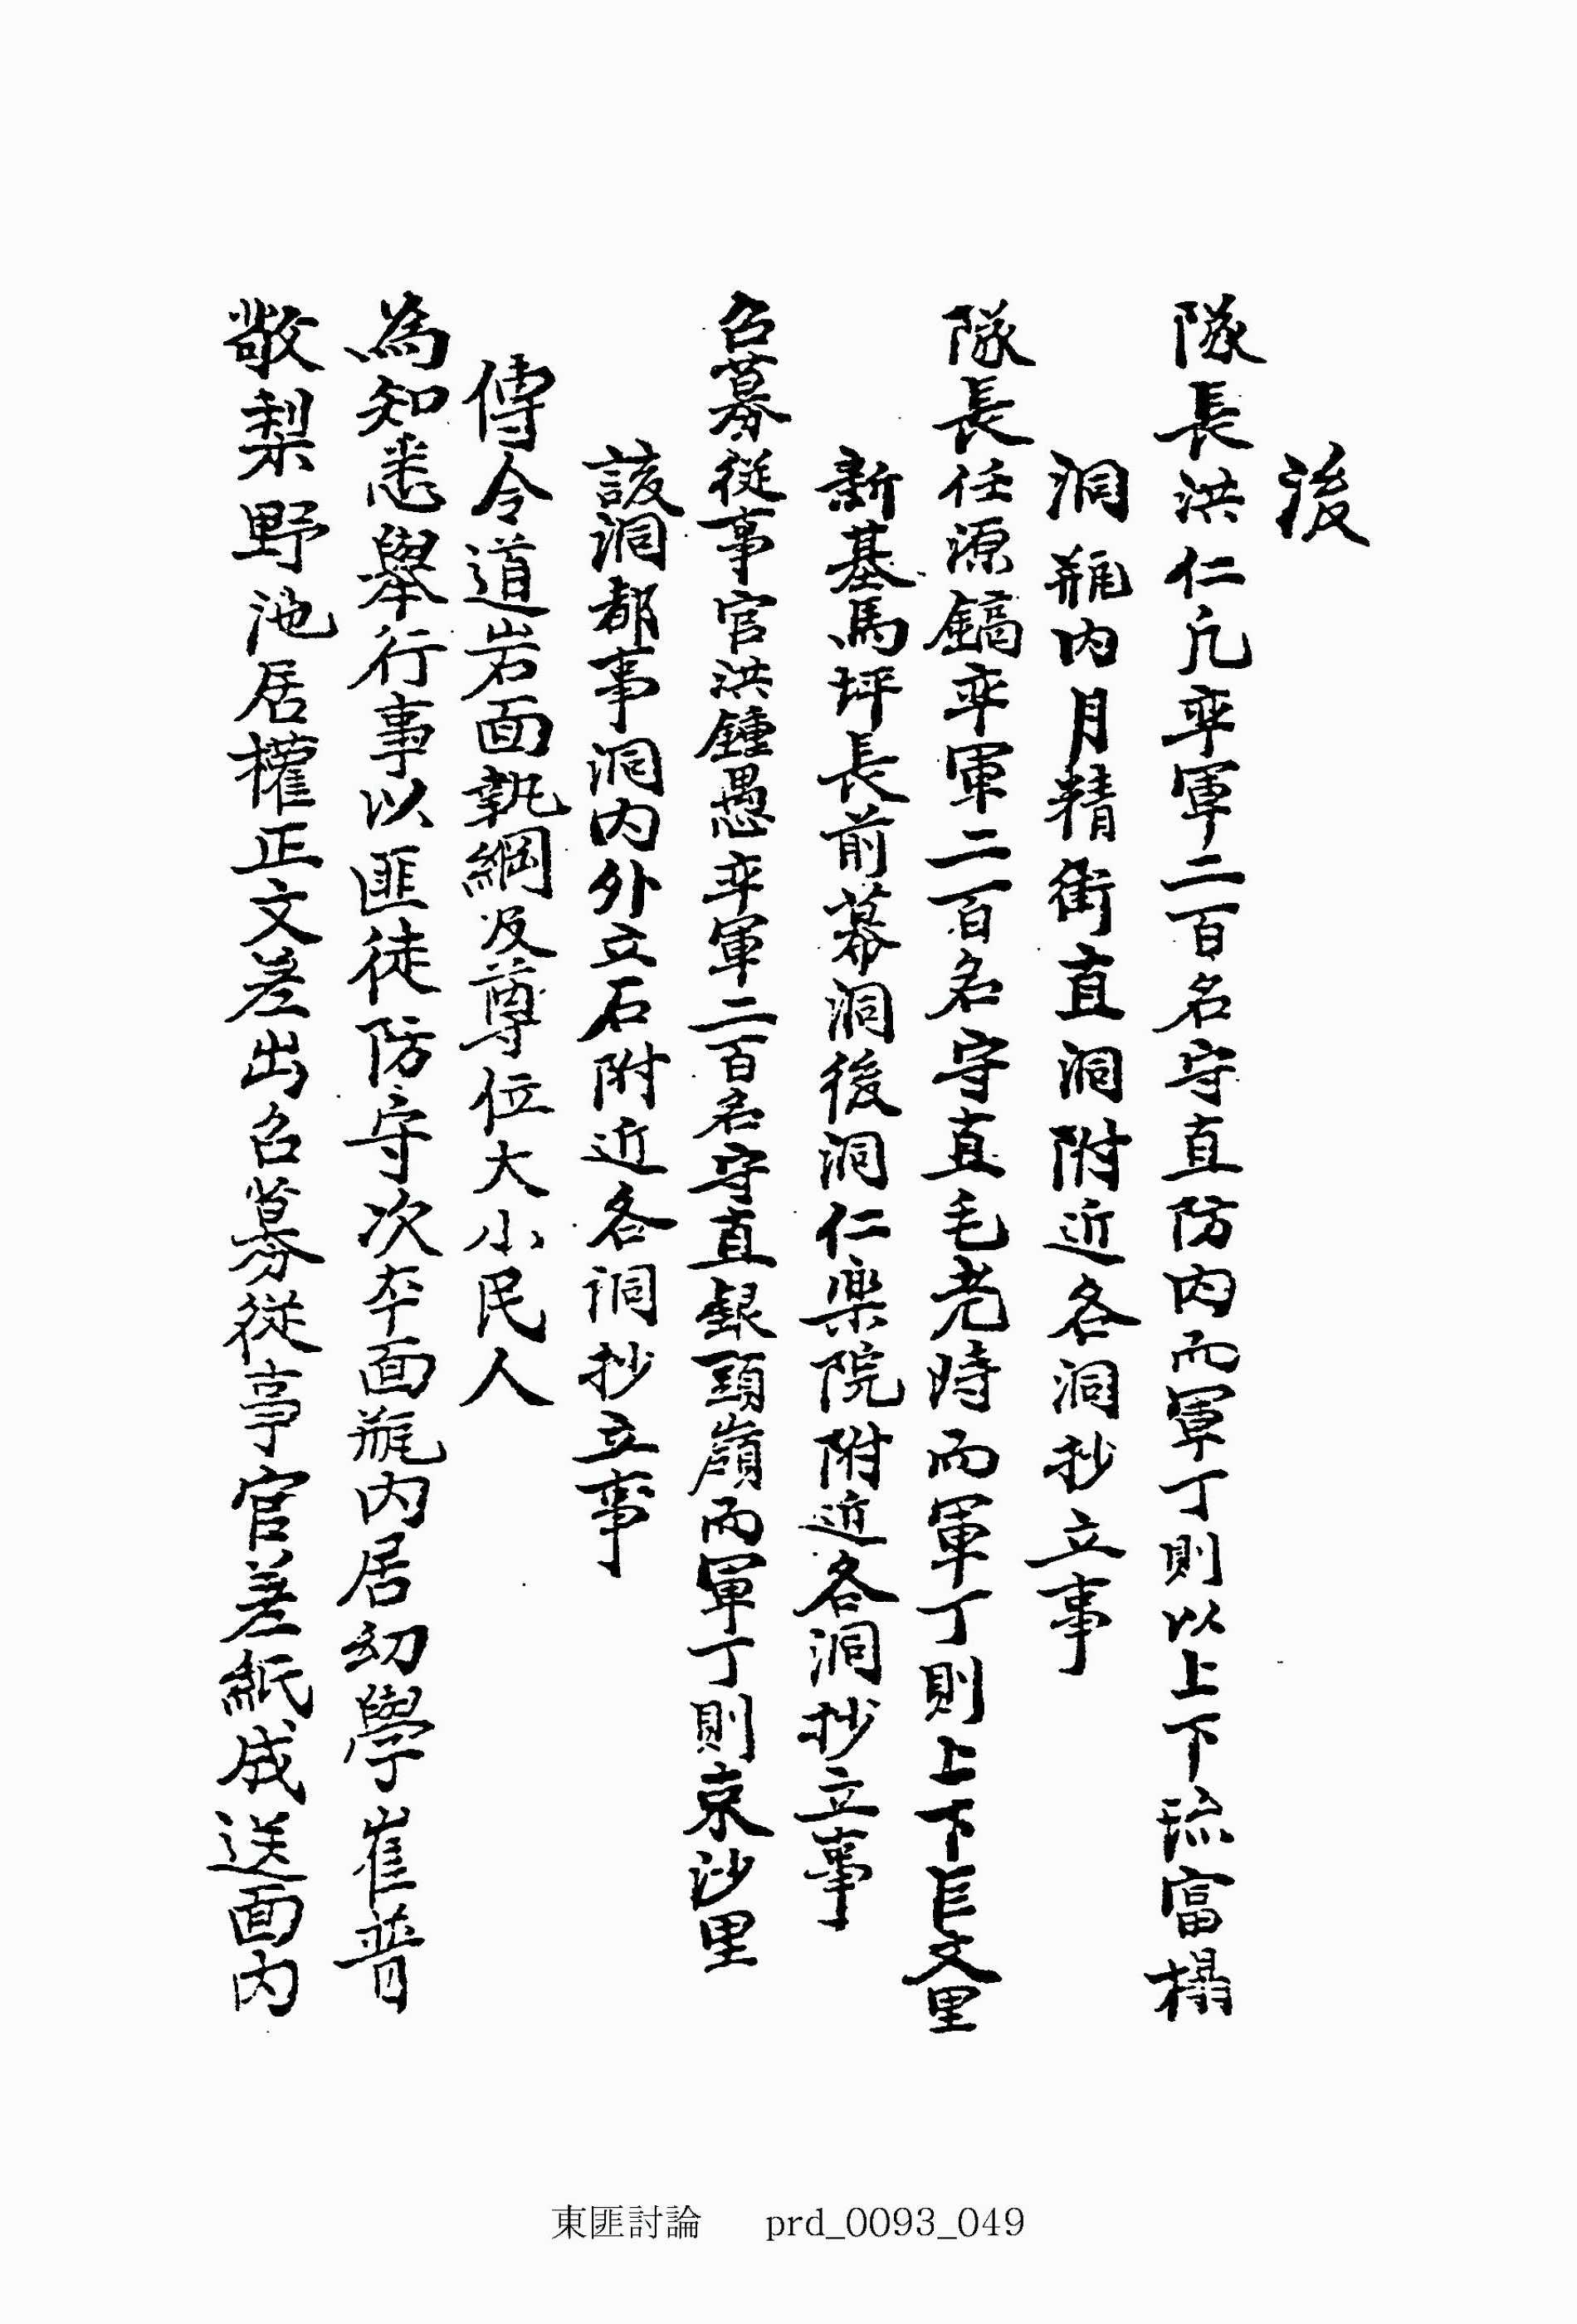 後
隊長洪仁凡率軍二百名守直防內而軍丁則以上下珫富榻
洞甁內月精街直洞附近各洞抄立事
隊長任源鎬率軍二百名守直毛老時而軍丁則上下長文里
新基馬坪長前幕洞後洞仁樂院附近各洞抄立事
召募從事官洪鍾愚率軍二百名守直銀頭嶺而軍丁則東沙里
該洞都事洞內外立石附近各洞抄立事
傳令道岩面執綱及尊位大小民人
為知悉擧行事以匪徒防守次本面甁內居幼學崔普
敬梨野池居權正文差出召募從事官差紙成送面內
東匪討論 prd_0093_049